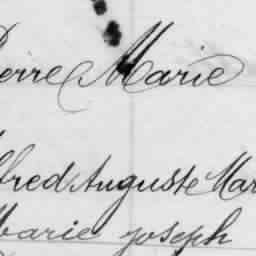 Pierre Marie
Alfred Auguste Mar
Marie joseph